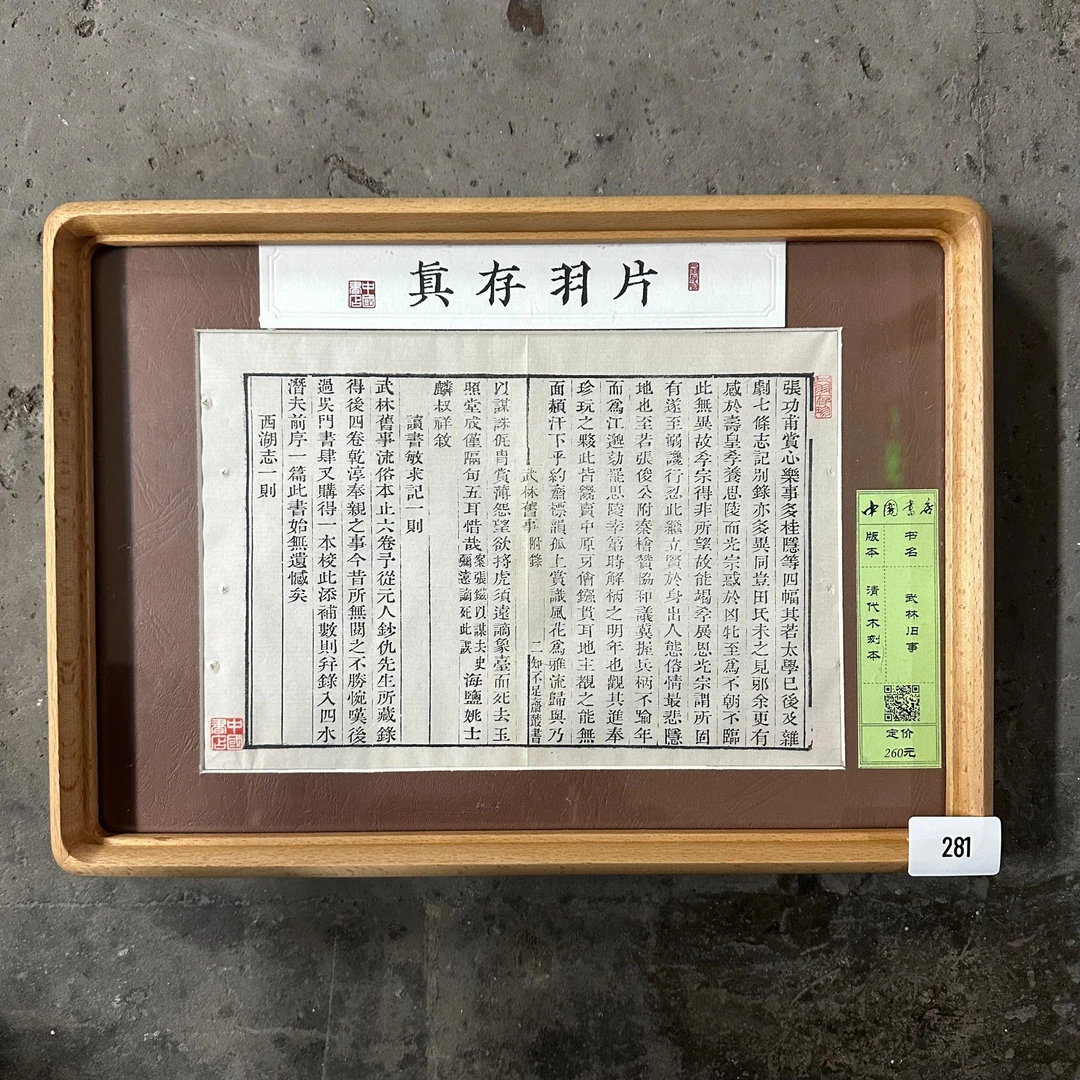 片羽存眞
中國書店
張功甫賞心樂事多桂隱等四幅其若太學已後及雜
劇七條志記別錄亦多異同豈田氏未之見邪余更有
感於壽皇孝養思陵而光宗惑於凶牝至爲不朝不臨
此無異故孝宗得非所望故能竭孝展恩光宗謂所固
有遂至弱讒行忍此繼立賢於身出人態俗情最悲隱
地也至若張俊公附湊檜贊協和議冀握兵柄不踰年
而爲江邈劾罷思陵幸第時解柄之明年也觀其進奉
珍玩之夥此皆鬻賣中原身偷貫耳地主覩之能無
面頳汗下乎約齋標韻孤上賞識風花爲雅流歸與乃
武林舊事 附錄 二 知不足齋叢書
以謀誅侂冑賞薄怨望欲將虎須遠謫象臺而死去玉
照堂成僅隔旬五耳惜哉案張鎡以謀去史彌遠謫死此誤海鹽姚士
麟叔祥敘
讀書敏求記一則
武林舊事流俗本止六卷予從元人鈔仇先生所藏錄
得後四卷乾淳奉親之事今昔所無閱之不勝惋嘆後
過吳門書肆又購得一本校此添補數則幷錄入四水
潛夫前序一篇此書始無遺憾矣
西湖志一則
中國書店
中國書店
书名 武林旧事
版本 清代木刻本
定价
260元
281